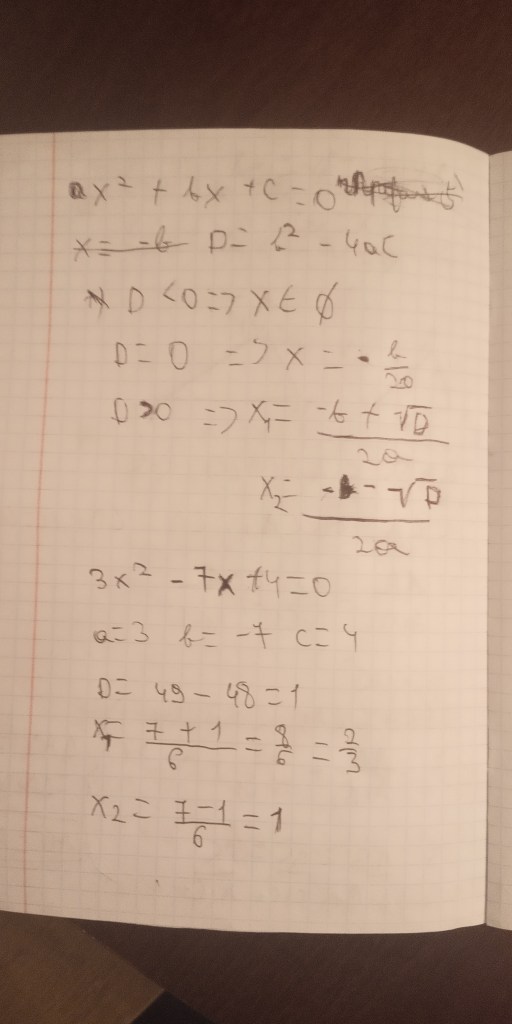 ax² + bx + c = 0
x = -b D = b² - 4ac
D < 0 => x ∈ ∅
D = 0 => x = - b/2a
D > 0 => x₁ = (-b + √D)/2a
x₂ = (-b - √D)/2a
3x² - 7x + 4 = 0
a = 3 b = -7 c = 4
D = 49 - 48 = 1
x₁ = (7 + 1)/6 = 8/6 = 2/3
x₂ = (7 - 1)/6 = 1